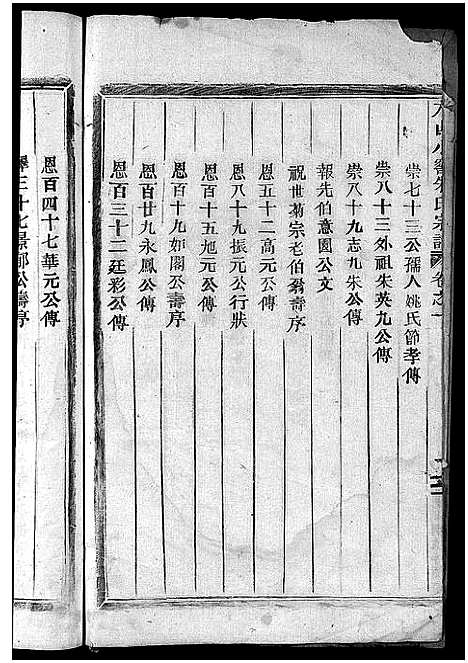 崇七十三公孺人姚氏節孝傳
崇八十三外祖朱英九公傳
崇八十九志九朱公傳
報先伯意園公文
祝世菊宗老伯翁壽序
恩五十二高元公傳
恩八十九振元公行狀
恩百十五旭元公傳
恩百十九如閣公壽序
恩百廿九永鳳公傳
恩百三十二廷彩公傳
恩百四十七華元公傳
三十七景郁公壽序
氏宗譜
卷之一